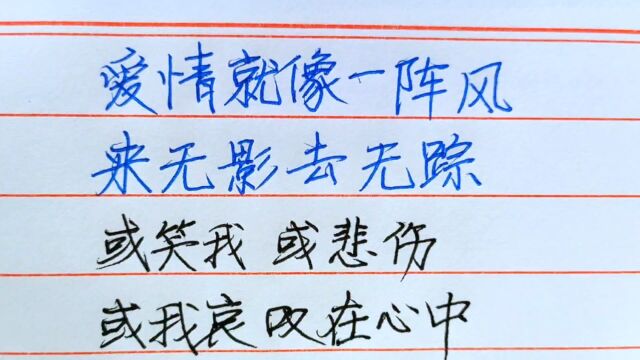 爱情就像一阵风
来无影去无踪
或笑我 或悲伤
或我哀叹在心中